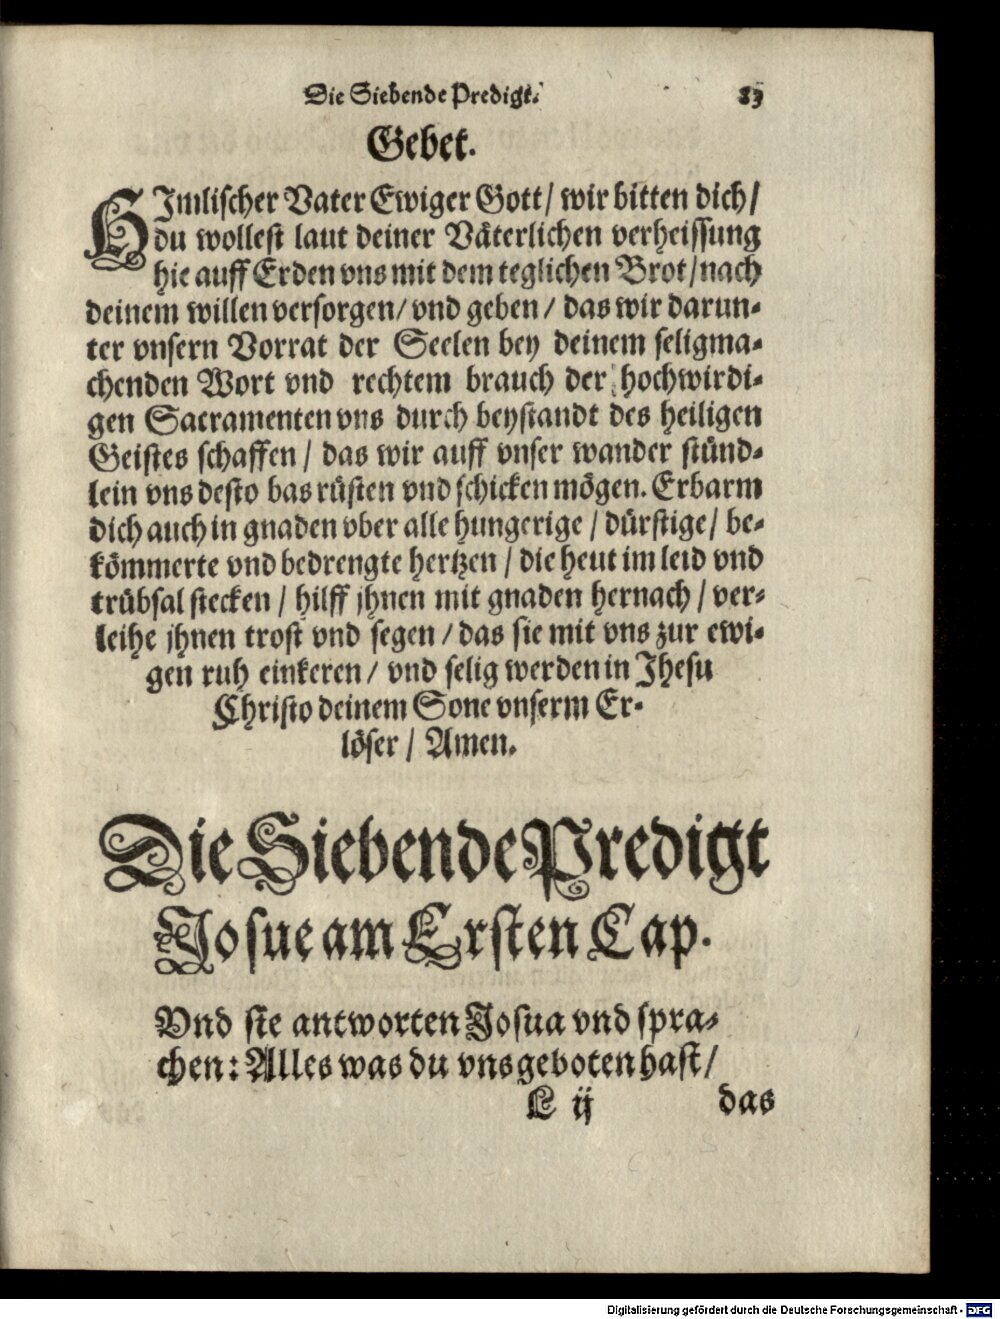 Die Siebende Predigt. 83
Gebet.
HImlischer Vater Ewiger Gott/ wir bitten dich/
du wollest laut deiner Väterlichen verheissung
hie auff Erden vns mit dem teglichen Brot/ nach
deinem willen versorgen/ vnd geben/ das wir darun-
ter vnsern Vorrat der Seelen bey deinem seligma-
chenden Wort vnd rechtem brauch der hochwirdi-
gen Sacramenten vns durch beystandt des heiligen
Geistes schaffen/ das wir auff vnser wander stünd-
lein vns desto bas rüsten vnd schicken mögen. Erbarm
dich auch in gnaden vber alle hungerige/ dürstige/ be-
kömmerte vnd bedrengte hertzen/ die heut im leid vnd
trübsal stecken/ hilff jhnen mit gnaden hernach/ ver-
leihe jhnen trost vnd segen/ das sie mit vns zur ewi-
gen ruh einkeren/ vnd selig werden in Jhesu
Christo deinem Sone vnserm Er-
löser/ Amen.
Die Siebende Predigt
Josue am Ersten Cap.
Vnd sie antworten Josua vnd spra-
chen: Alles was du vns geboten hast/
L ij das
Digitalisierung gefördert durch die Deutsche Forschungsgemeinschaft - DFG